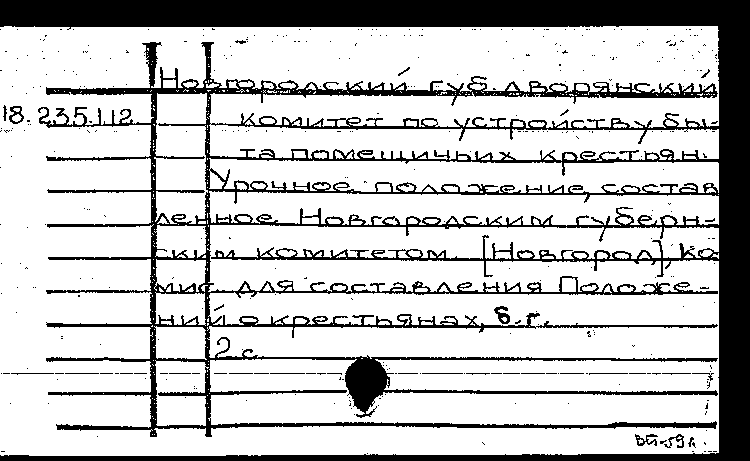 Новгородский губ. дворянский
18.235.1.12
комитет по устройству бы-
та помещичьих крестьян.
Урочное положение, состав
ленное Новгородским губерн-
ским комитетом. [Новгород], Ко-
мис. для составления Положе-
ний о крестьянах, б.г.
2 с.